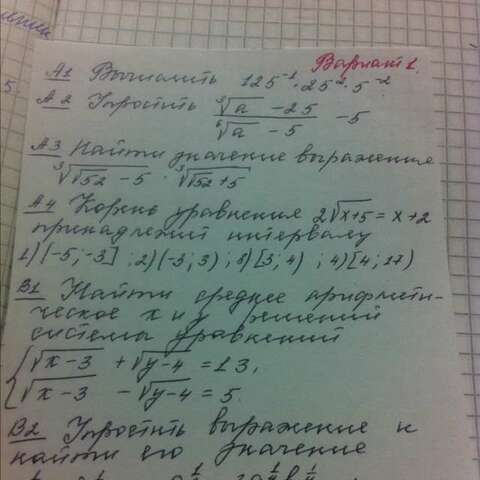 Вариант 1.
А1 Вычислить 125⁻¹ · 25² · 5⁻²
А2 Упростить (∛a − 25)/(⁶√a − 5) − 5
А3 Найти значение выражения
∛(√52 − 5) · ∛(√52 + 5)
А4 Корень уравнения 2√(x+5) = x + 2
принадлежит интервалу
1) (−5; −3] ; 2) (−3; 3) ; 3) [3; 4) ; 4) [4; 17)
В1 Найти среднее арифмети-
ческое x и y решений
системы уравнений
{ √(x−3) + √(y−4) = 13,
√(x−3) − √(y−4) = 5.
В2 Упростить выражение и
найти его значение